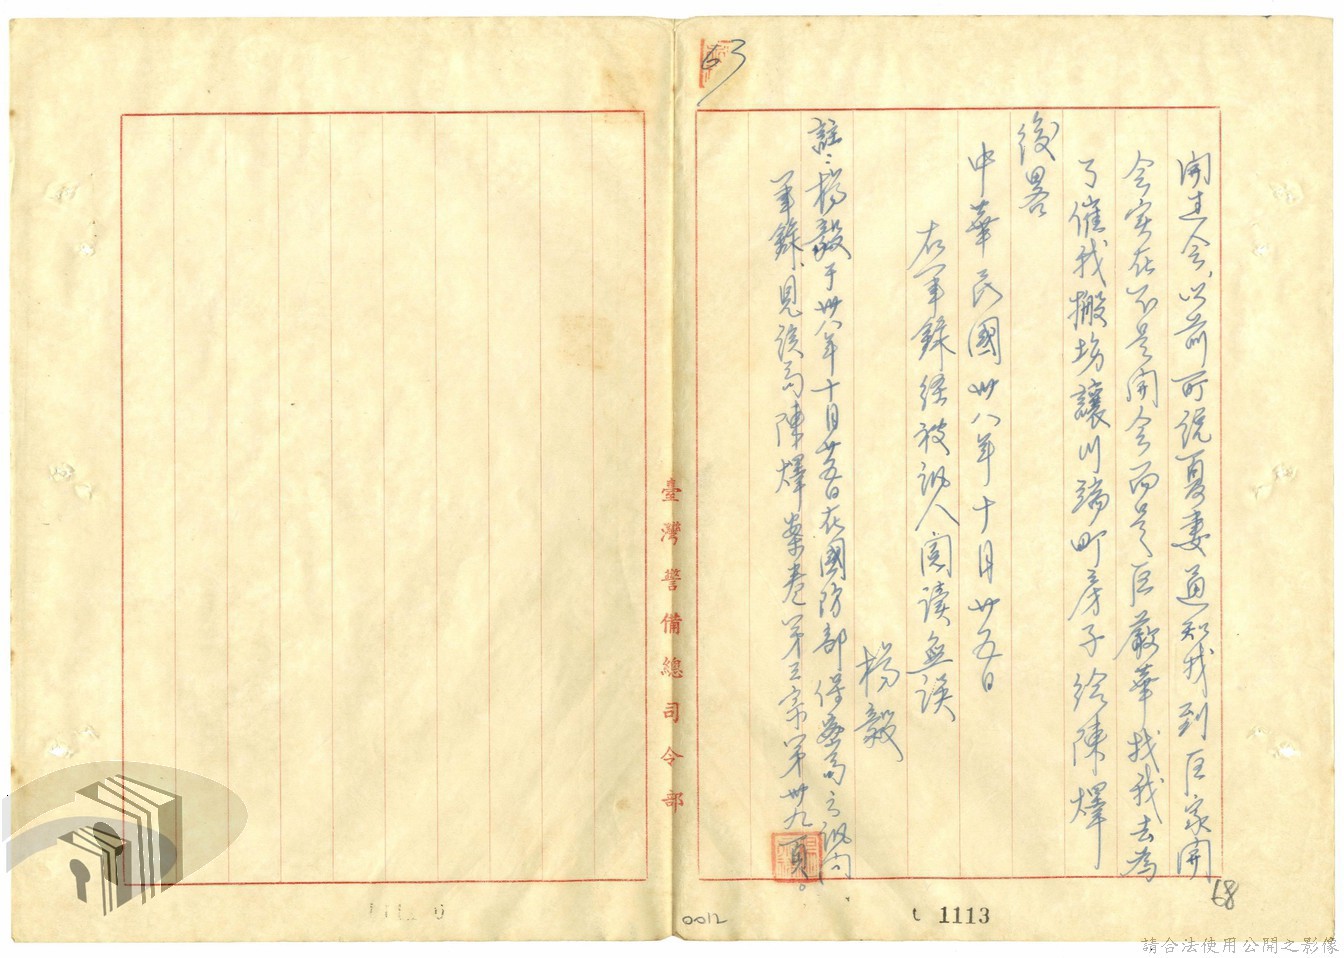 開过会，以前所説夏妻通知我到匡家開
会实在不是開会而是匡蔽華找我去為
了催我搬塲讓川端町房子给陳燡
後畧
中華民國卅八年十月廿五日
右筆錄经被訊人閱读無误
楊毅
註：楊毅于卅八年十月廿五日在國防部保密局之訊问
筆錄，見该局陳燡案卷第三宗第卅九頁。
臺灣警備總司令部
63
68
0012
1113
請合法使用公開之影像